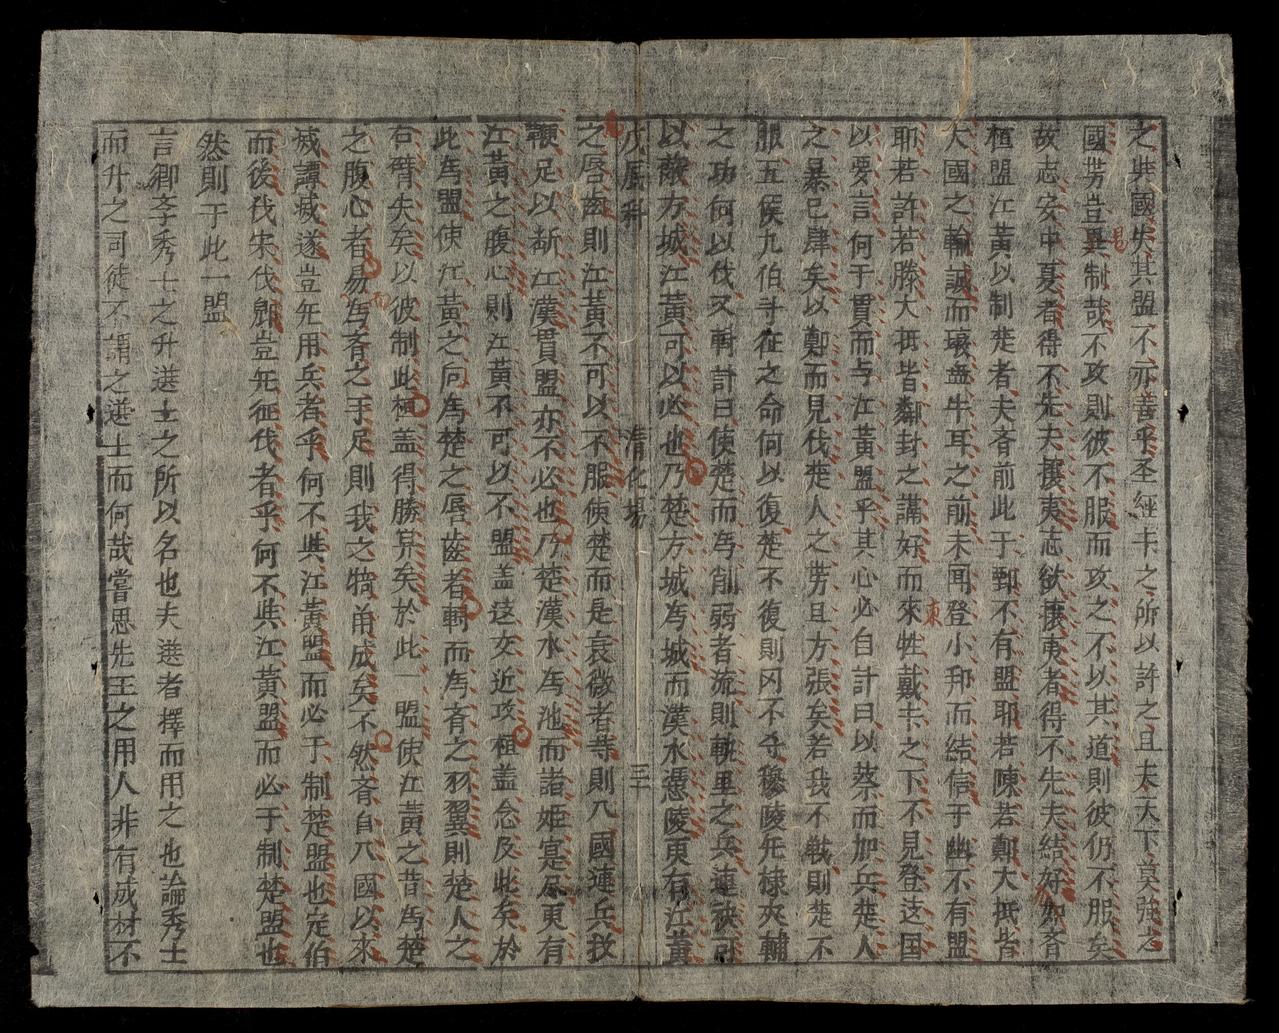 之典國失其盟不亦善乎圣經卡之所以許之且夫天下莫強之
國芳豈異制哉不攻則彼不服而攻之不以其道則彼仍不服矣
故志安中夏者得不先夫攘夷志欲攘夷者得不先夫結好如斉
桓盟江黃以制楚者夫斉前此于鄄不有盟耶若陳若鄭大抵皆
大國之輸誠而壞盍牛耳之前未聞登小邦而結信于幽不有盟
耶若許若滕大抵皆鄰封之講好而來牲載卡之下不見登这国
以要言何于貫而与江黃盟乎其心必自計曰以蔡而加兵楚人
之暴已肆矣以鄭而見伐楚人之势且方張矣若我不戦則楚不
服五侯九伯寻在之命何以復楚不復則冈不寻穆陵旡棣夾輔
之功何以伐又暫計曰使楚而為削弱者流則軼里之兵連袂可
以蔽方城江黃可以必也乃楚方城為城而漢水憑陵更有江黃
戊辰科 清化場 三
之唇齒則江黃不可以不服使楚而是衰微者等則八國連兵投
鞭足以断江漢貫盟亦不必也乃楚漢水為池而諸姬寔尽更有
江黃之腹心則江黃不可以不盟盖这交近攻桓盖念及此矣於
此為盟使江黃之向為楚之唇齒者轉而為斉之羽翼則楚人之
右臂失矣以彼制此桓盖得勝筭矣於此一盟使江黃之昔為楚
之腹心者易為斉之手足則我之犄角成矣不然斉自八國以來
滅譚滅遂豈旡用兵者乎何不與江黃盟而必于制楚盟也定伯
而後伐宋伐郳豈旡征伐者乎何不與江黃盟而必于制楚盟也
然則于此一盟
言卿李秀士之升選士之所以名也夫選者擇而用之也論秀士
而升之司徒不謂之選士而何哉嘗思先王之用人非有成材不